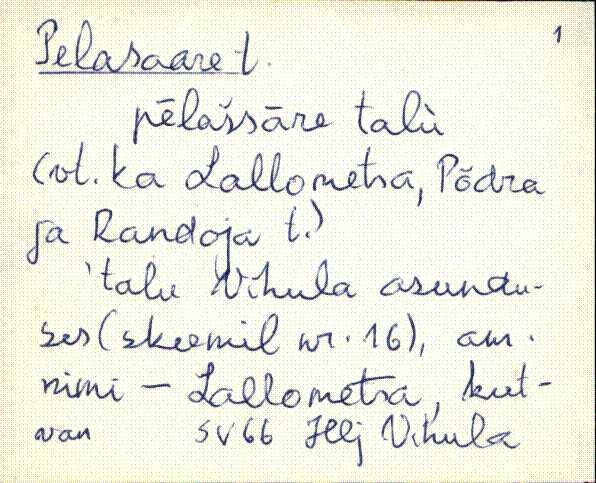 1
Pelasaare t.
pēlašsāre talù
(vt. ka Lallometsa, Põdra
ja Randoja t.)
'talu Vihula asundu-
ses (skeemil nr. 16), am.
nimi – Lallometsa, kut-
van SV66 Hlj Vihula